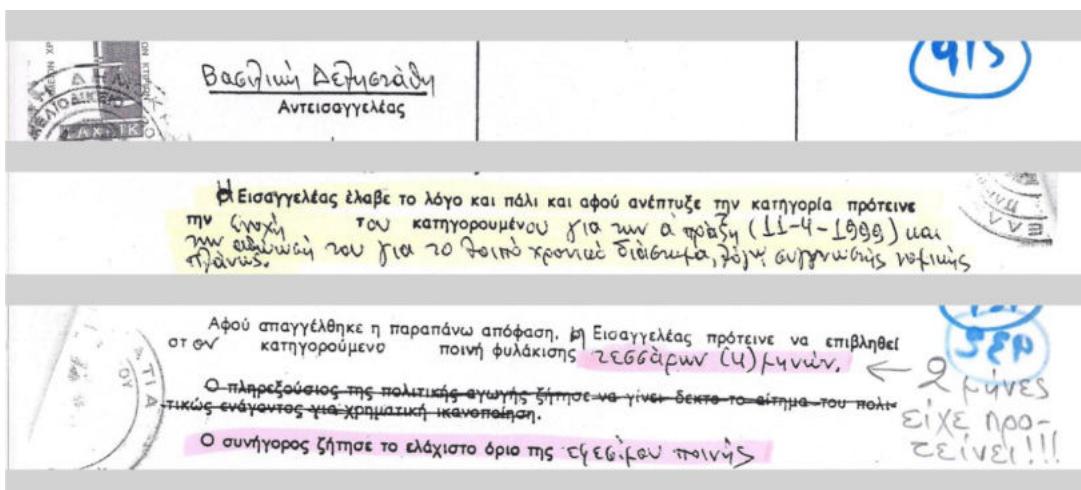 915
Βασιλική Δεληστάθη
Αντεισαγγελέας
Η Εισαγγελέας έλαβε το λόγο και πάλι και αφού ανέπτυξε την κατηγορία πρότεινε
την ενοχή του κατηγορουμένου για την α πράξη (11-4-1999) και
την αθώωσή του για το λοιπό χρονικό διάστημα, λόγω συγγνωστής νομικής
πλάνης.
Αφού απαγγέλθηκε η παραπάνω απόφαση, η Εισαγγελέας πρότεινε να επιβληθεί
στον κατηγορούμενο ποινή φυλάκισης τεσσάρων (4) μηνών.
← 2 μήνες
είχε προ-
τείνει!!!
Ο πληρεξούσιος της πολιτικής αγωγής ζήτησε να γίνει δεκτο το αίτημα του πολι-
τικώς ενάγοντος για χρηματική ικανοποίηση.
Ο συνήγορος ζήτησε το ελάχιστο όριο της εφεσίμου ποινής